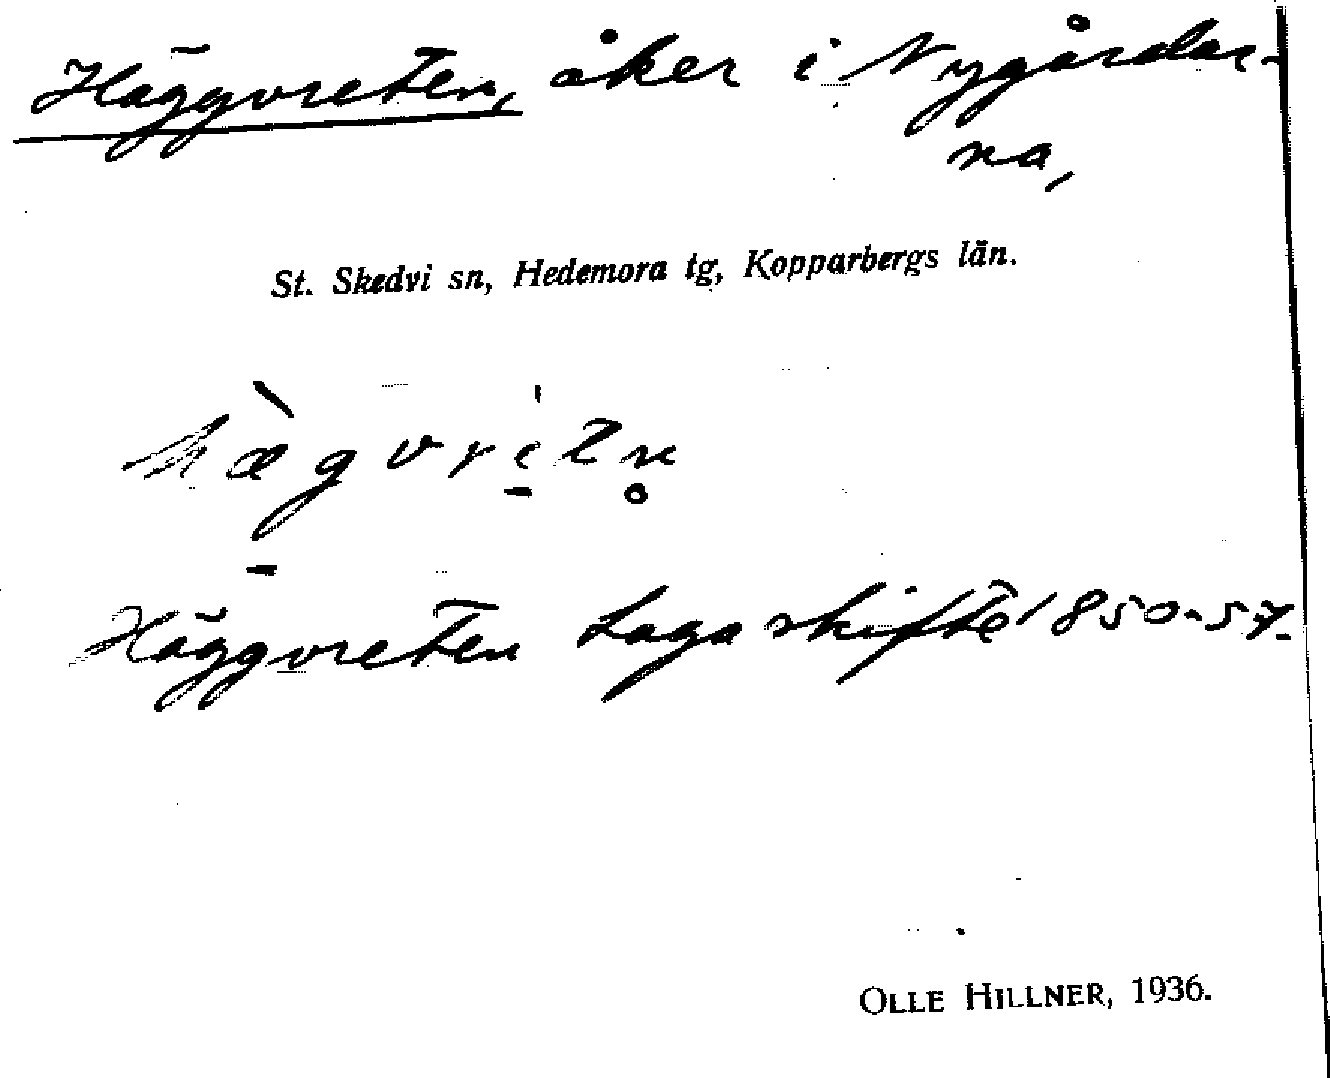 Häggvreten, åker i Nygårdar-
na,
St. Skedvi sn, Hedemora tg, Kopparbergs län.
hæ̀gvrètn̥
Häggvreten Laga skifte 1850-57.
OLLE HILLNER, 1936.